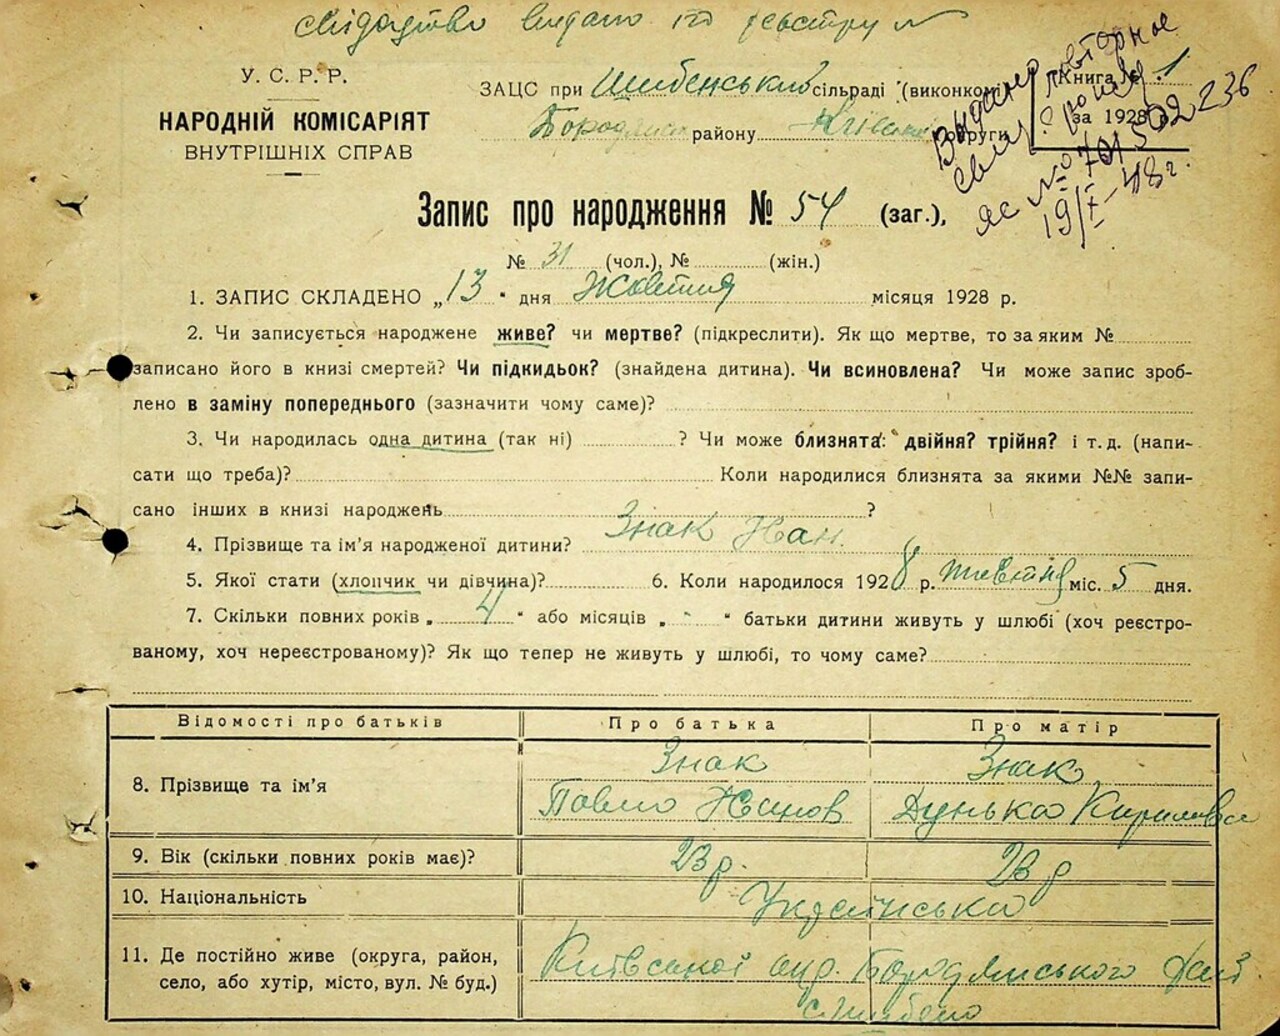 свідоцтво видано по реєстру №
У. С. Р. Р.
НАРОДНІЙ КОМІСАРІЯТ
ВНУТРІШНІХ СПРАВ
ЗАЦС при Шибенський сільраді (виконкомі)
Бородянс району Київської округи
Книга № 1
за 1928 р.
Выдано повторное
свид
ЯС № 701502 236
19/X-48г.
Запис про народження № 54 (заг.),
№ 31 (чол.), № (жін.)
1. ЗАПИС СКЛАДЕНО „13" дня Жовтня місяця 1928 р.
2. Чи записується народжене живе? чи мертве? (підкреслити). Як що мертве, то за яким №
записано його в книзі смертей? Чи підкидьок? (знайдена дитина). Чи всиновлена? Чи може запис зроб-
лено в заміну попереднього (зазначити чому саме)?
3. Чи народилась одна дитина (так ні) ? Чи може близнята: двійня? трійня? і т. д. (напи-
сати що треба)? Коли народилися близнята за якими №№ запи-
сано інших в книзі народжень ?
4. Прізвище та ім'я народженої дитини? Знак Иван
5. Якої стати (хлопчик чи дівчина)? 6. Коли народилося 1928 р. жовтня міс. 5 дня.
7. Скільки повних років „4" або місяців „-" батьки дитини живуть у шлюбі (хоч реєстро-
ваному, хоч нереєстрованому)? Як що тепер не живуть у шлюбі, то чому саме?
Відомості про батьків Про батька Про матір
8. Прізвище та ім'я Знак Знак
Павло Иванов Дунька Кирилівна
9. Вік (скільки повних років має)? 23 р. 23 р
10. Національність Українська
11. Де постійно живе (округа, район, Київської окр. Бородянського рай
село, або хутір, місто, вул. № буд.) с. Шибено